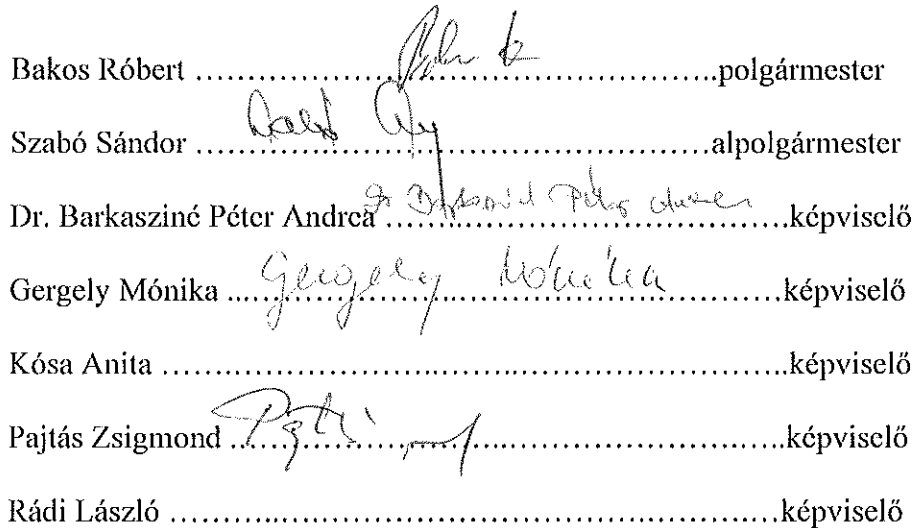 Bakos Róbert ................................................polgármester
Szabó Sándor ................................................alpolgármester
Dr. Barkasziné Péter Andrea ................................................képviselő
Gergely Mónika Gergely Mónika ................................................képviselő
Kósa Anita ................................................képviselő
Pajtás Zsigmond ................................................képviselő
Rádi László ................................................képviselő